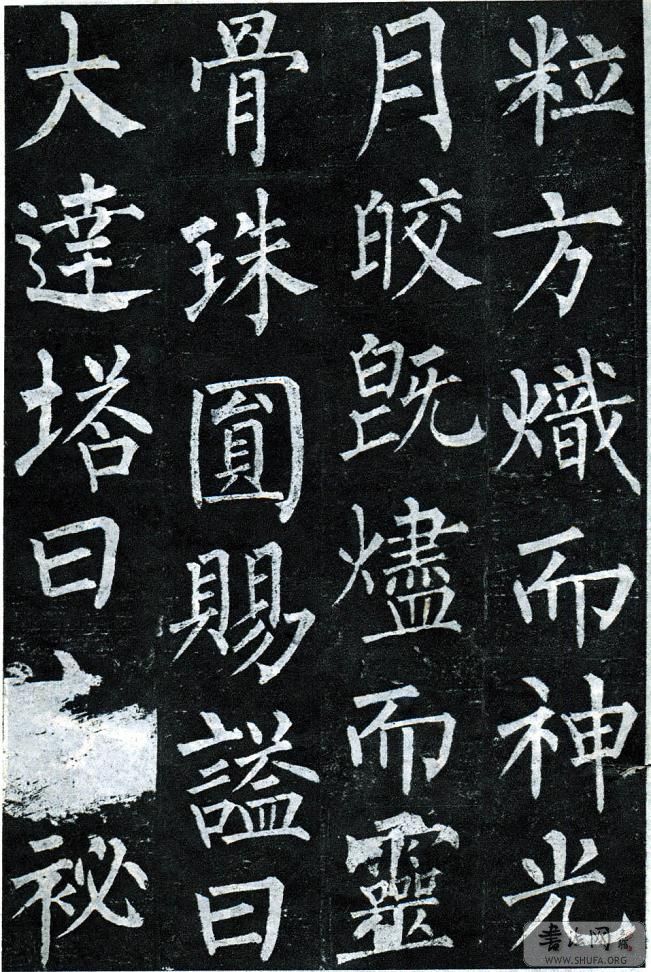 粒方熾而神光
月皎既燼而靈
骨珠圓賜謚曰
大達塔曰祕
書法网
WWW.SHUFA.ORG